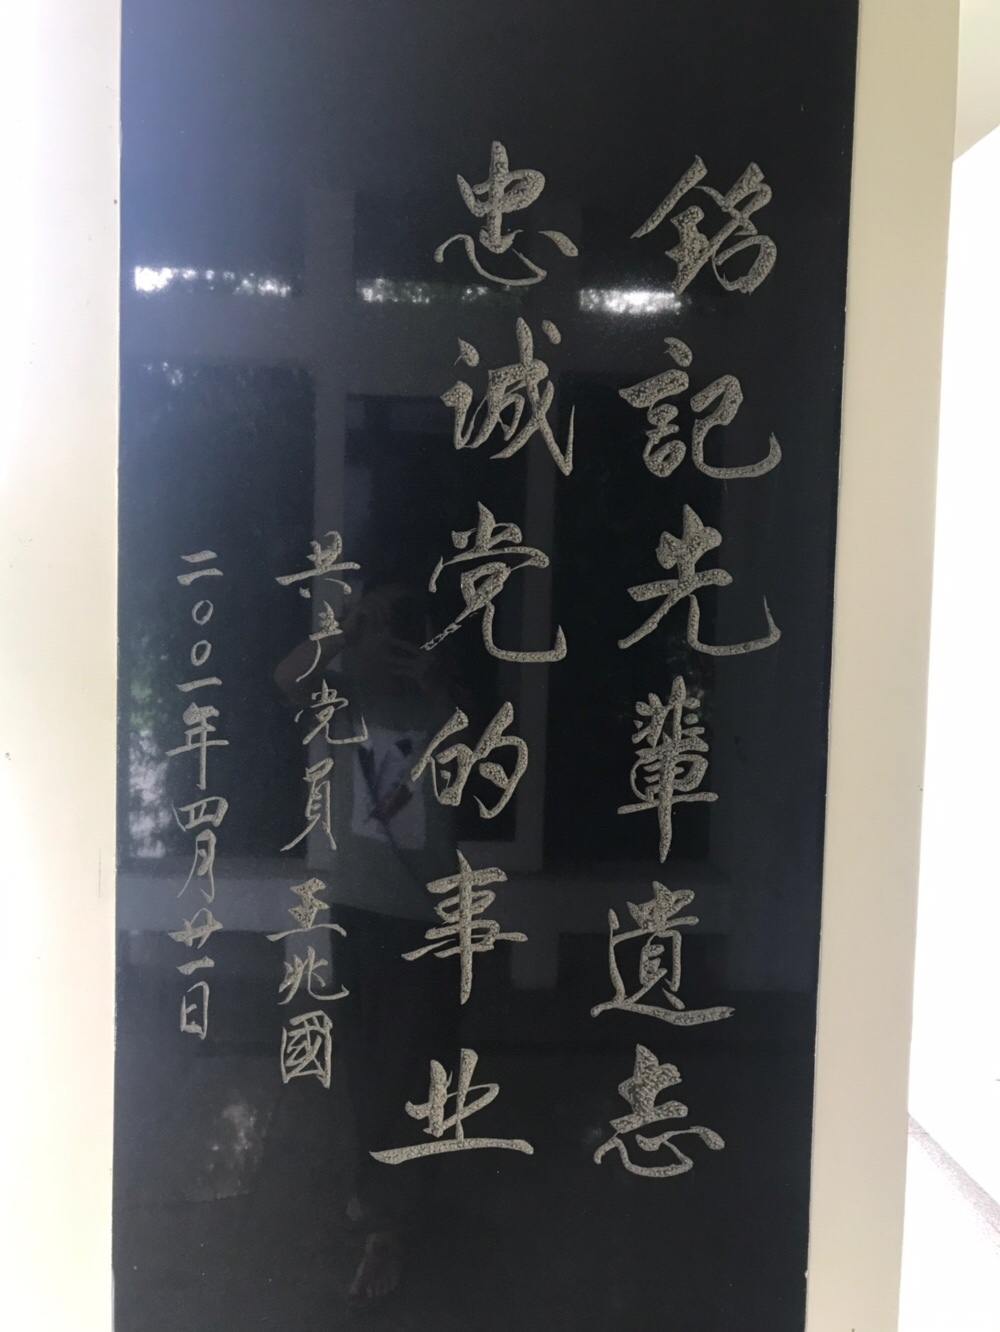 銘記先輩遺志
忠誠党的事业
共产党員 王兆國
二〇〇一年四月廿一日